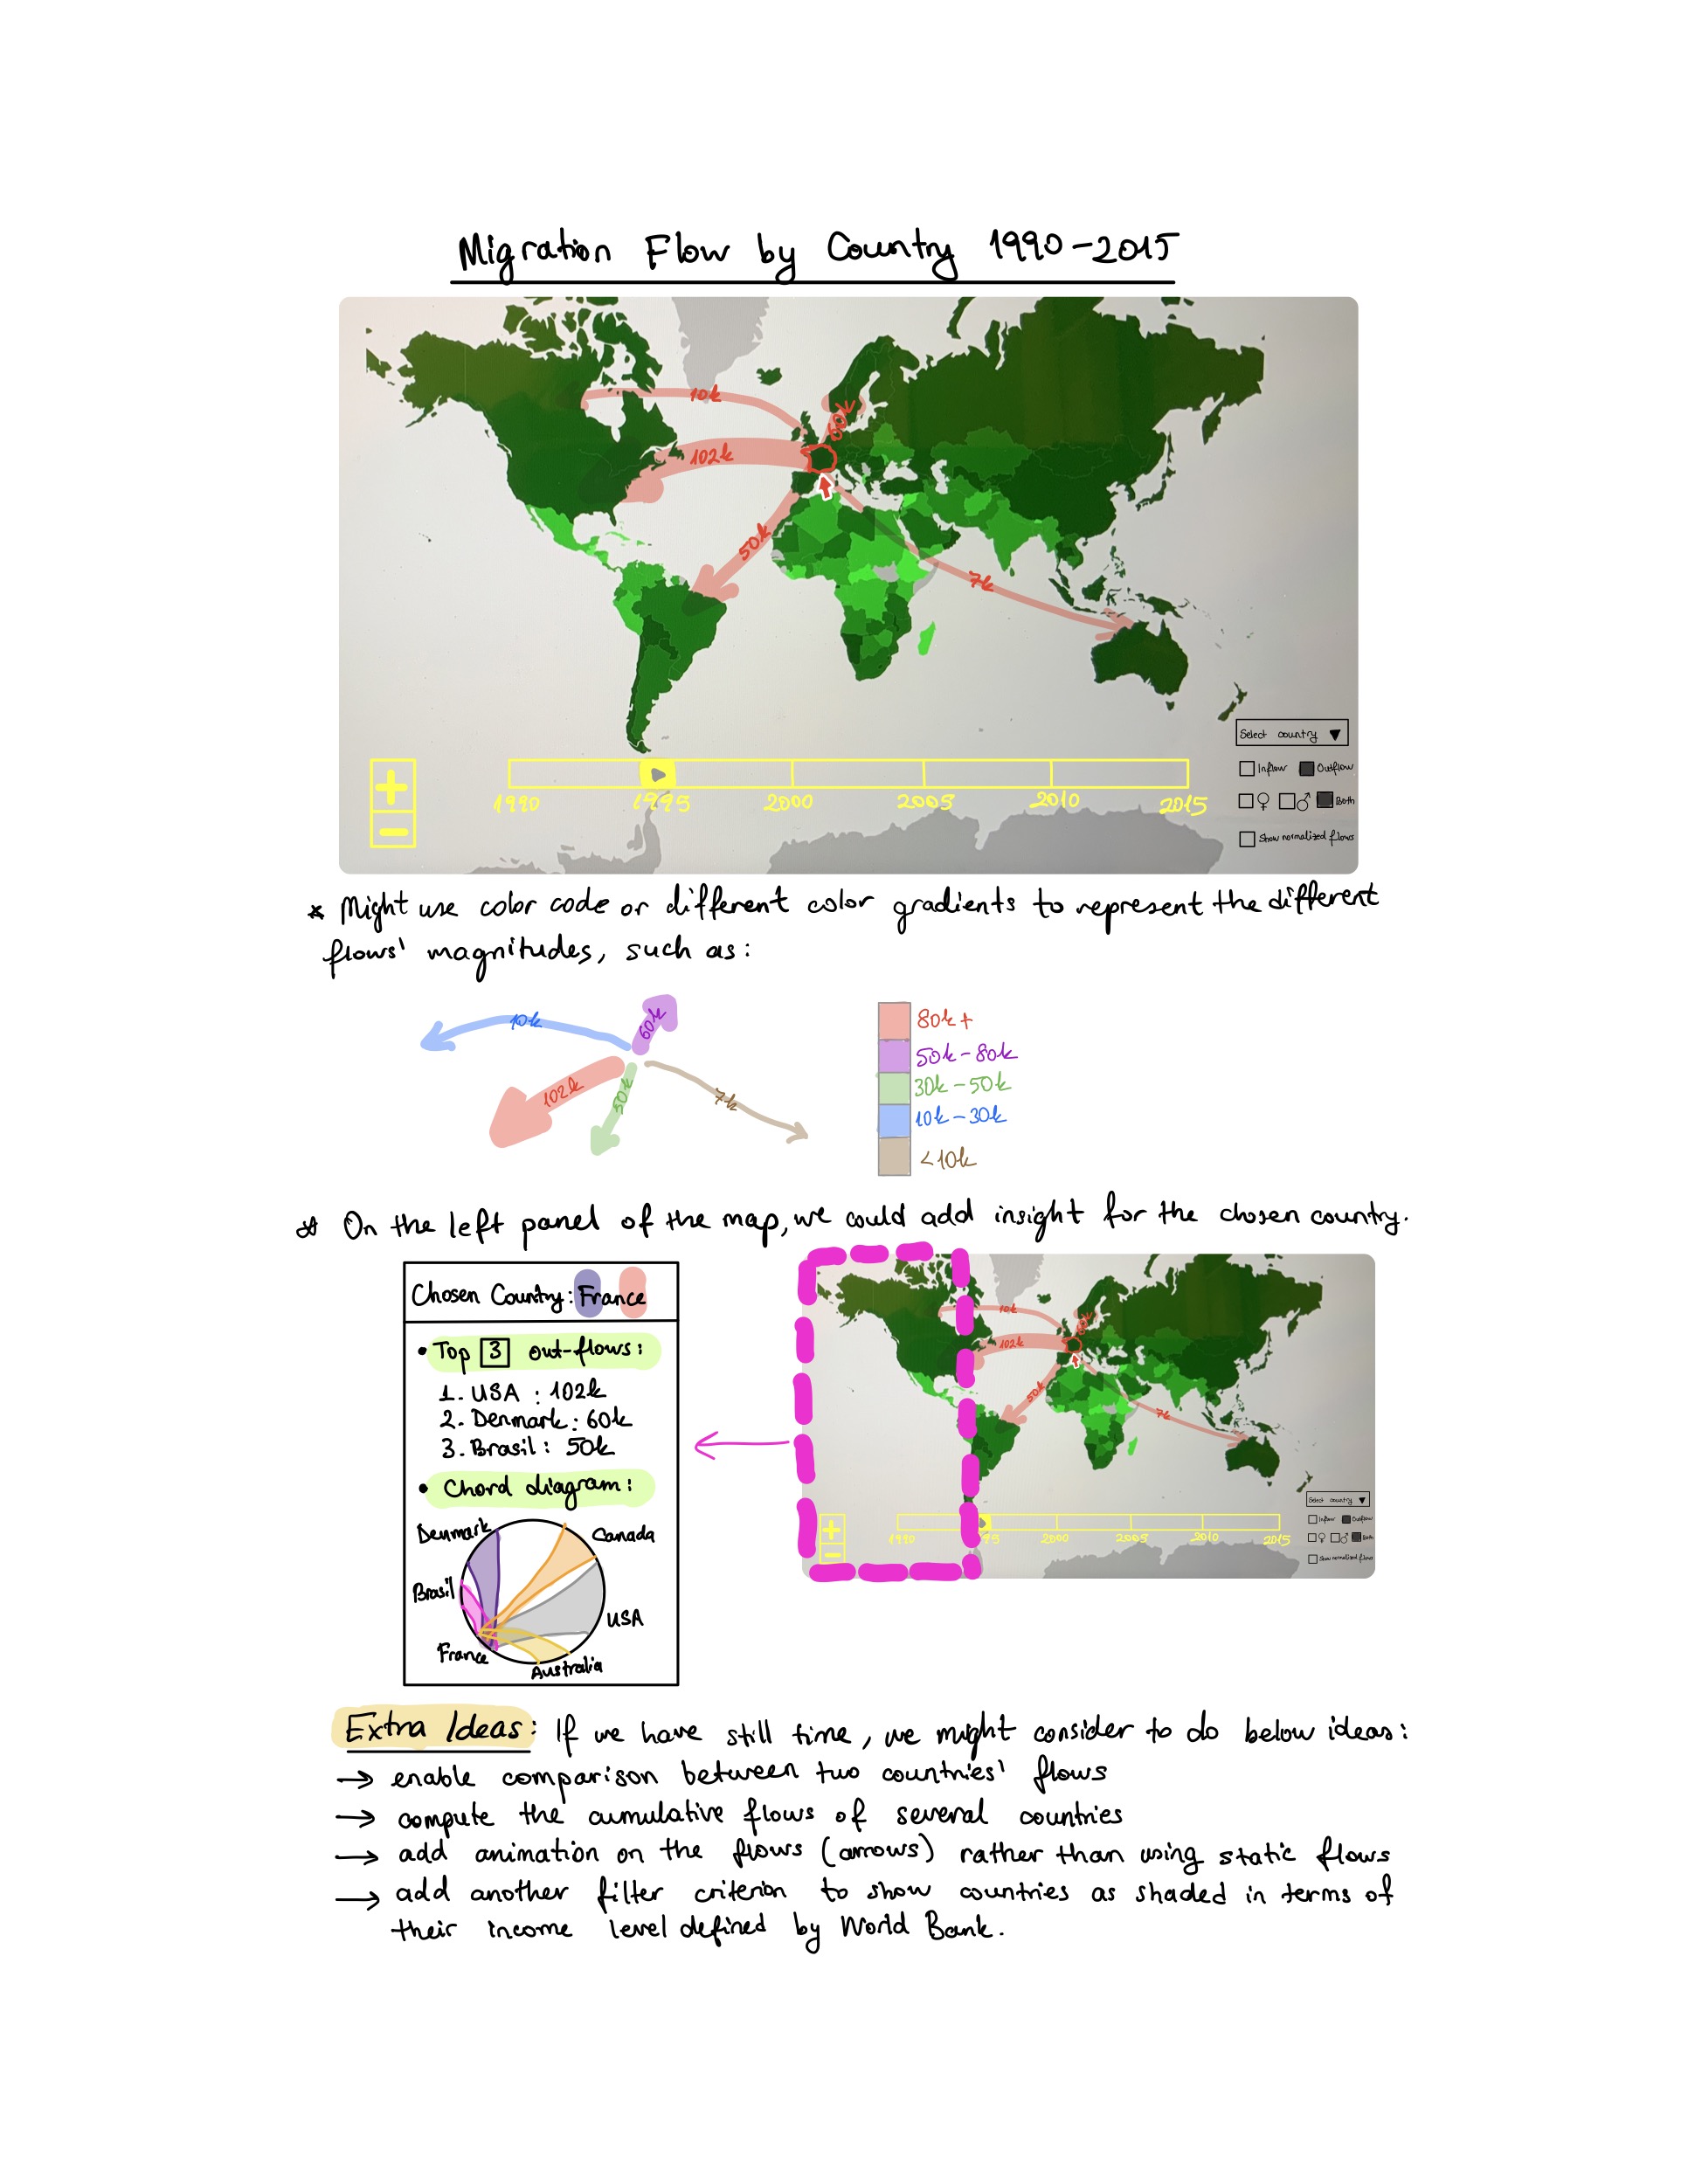 Migration Flow by Country 1990-2015
10k
60k
102k
50k
7k
Select country ▼
Inflow Outflow
♀ ♂ Both
Show normalized flows
+
-
1990 1995 2000 2005 2010 2015
* Might use color code or different color gradients to represent the different
flows' magnitudes, such as:
10k
60k
102k
50k
7k
80k+
50k-80k
30k-50k
10k-30k
<10k
* On the left panel of the map, we could add insight for the chosen country.
Chosen Country: France
• Top 3 out-flows:
1. USA : 102k
2. Denmark: 60k
3. Brasil: 50k
• Chord diagram:
Denmark
Canada
Brasil
USA
France
Australia
10k
60k
102k
50k
7k
Select country ▼
Inflow Outflow
♀ ♂ Both
Show normalized flows
+
-
1990 95 2000 2005 2010 2015
Extra Ideas: If we have still time, we might consider to do below ideas:
→ enable comparison between two countries' flows
→ compute the cumulative flows of several countries
→ add animation on the flows (arrows) rather than using static flows
→ add another filter criterion to show countries as shaded in terms of
their income level defined by World Bank.